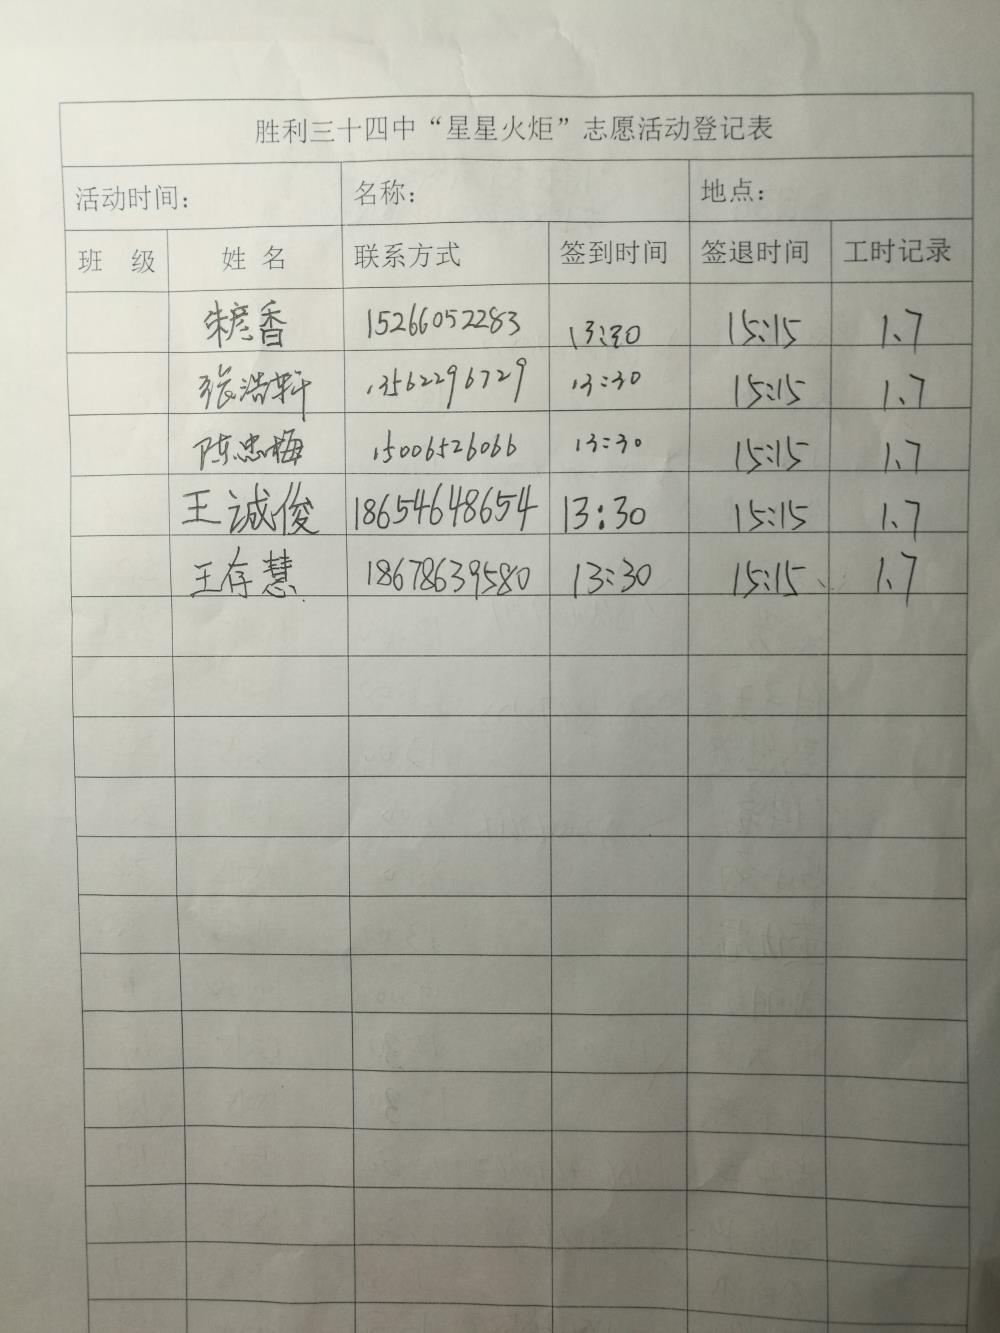 胜利三十四中“星星火炬”志愿活动登记表
活动时间： 名称： 地点：
班 级 姓 名 联系方式 签到时间 签退时间 工时记录
朱彦香 15266052283 13:30 15:15 1.7
张浩轩 13562296729 13:30 15:15 1.7
陈忠梅 15006526066 13:30 15:15 1.7
王诚俊 18654648654 13:30 15:15 1.7
王存慧 18678639580 13:30 15:15 1.7